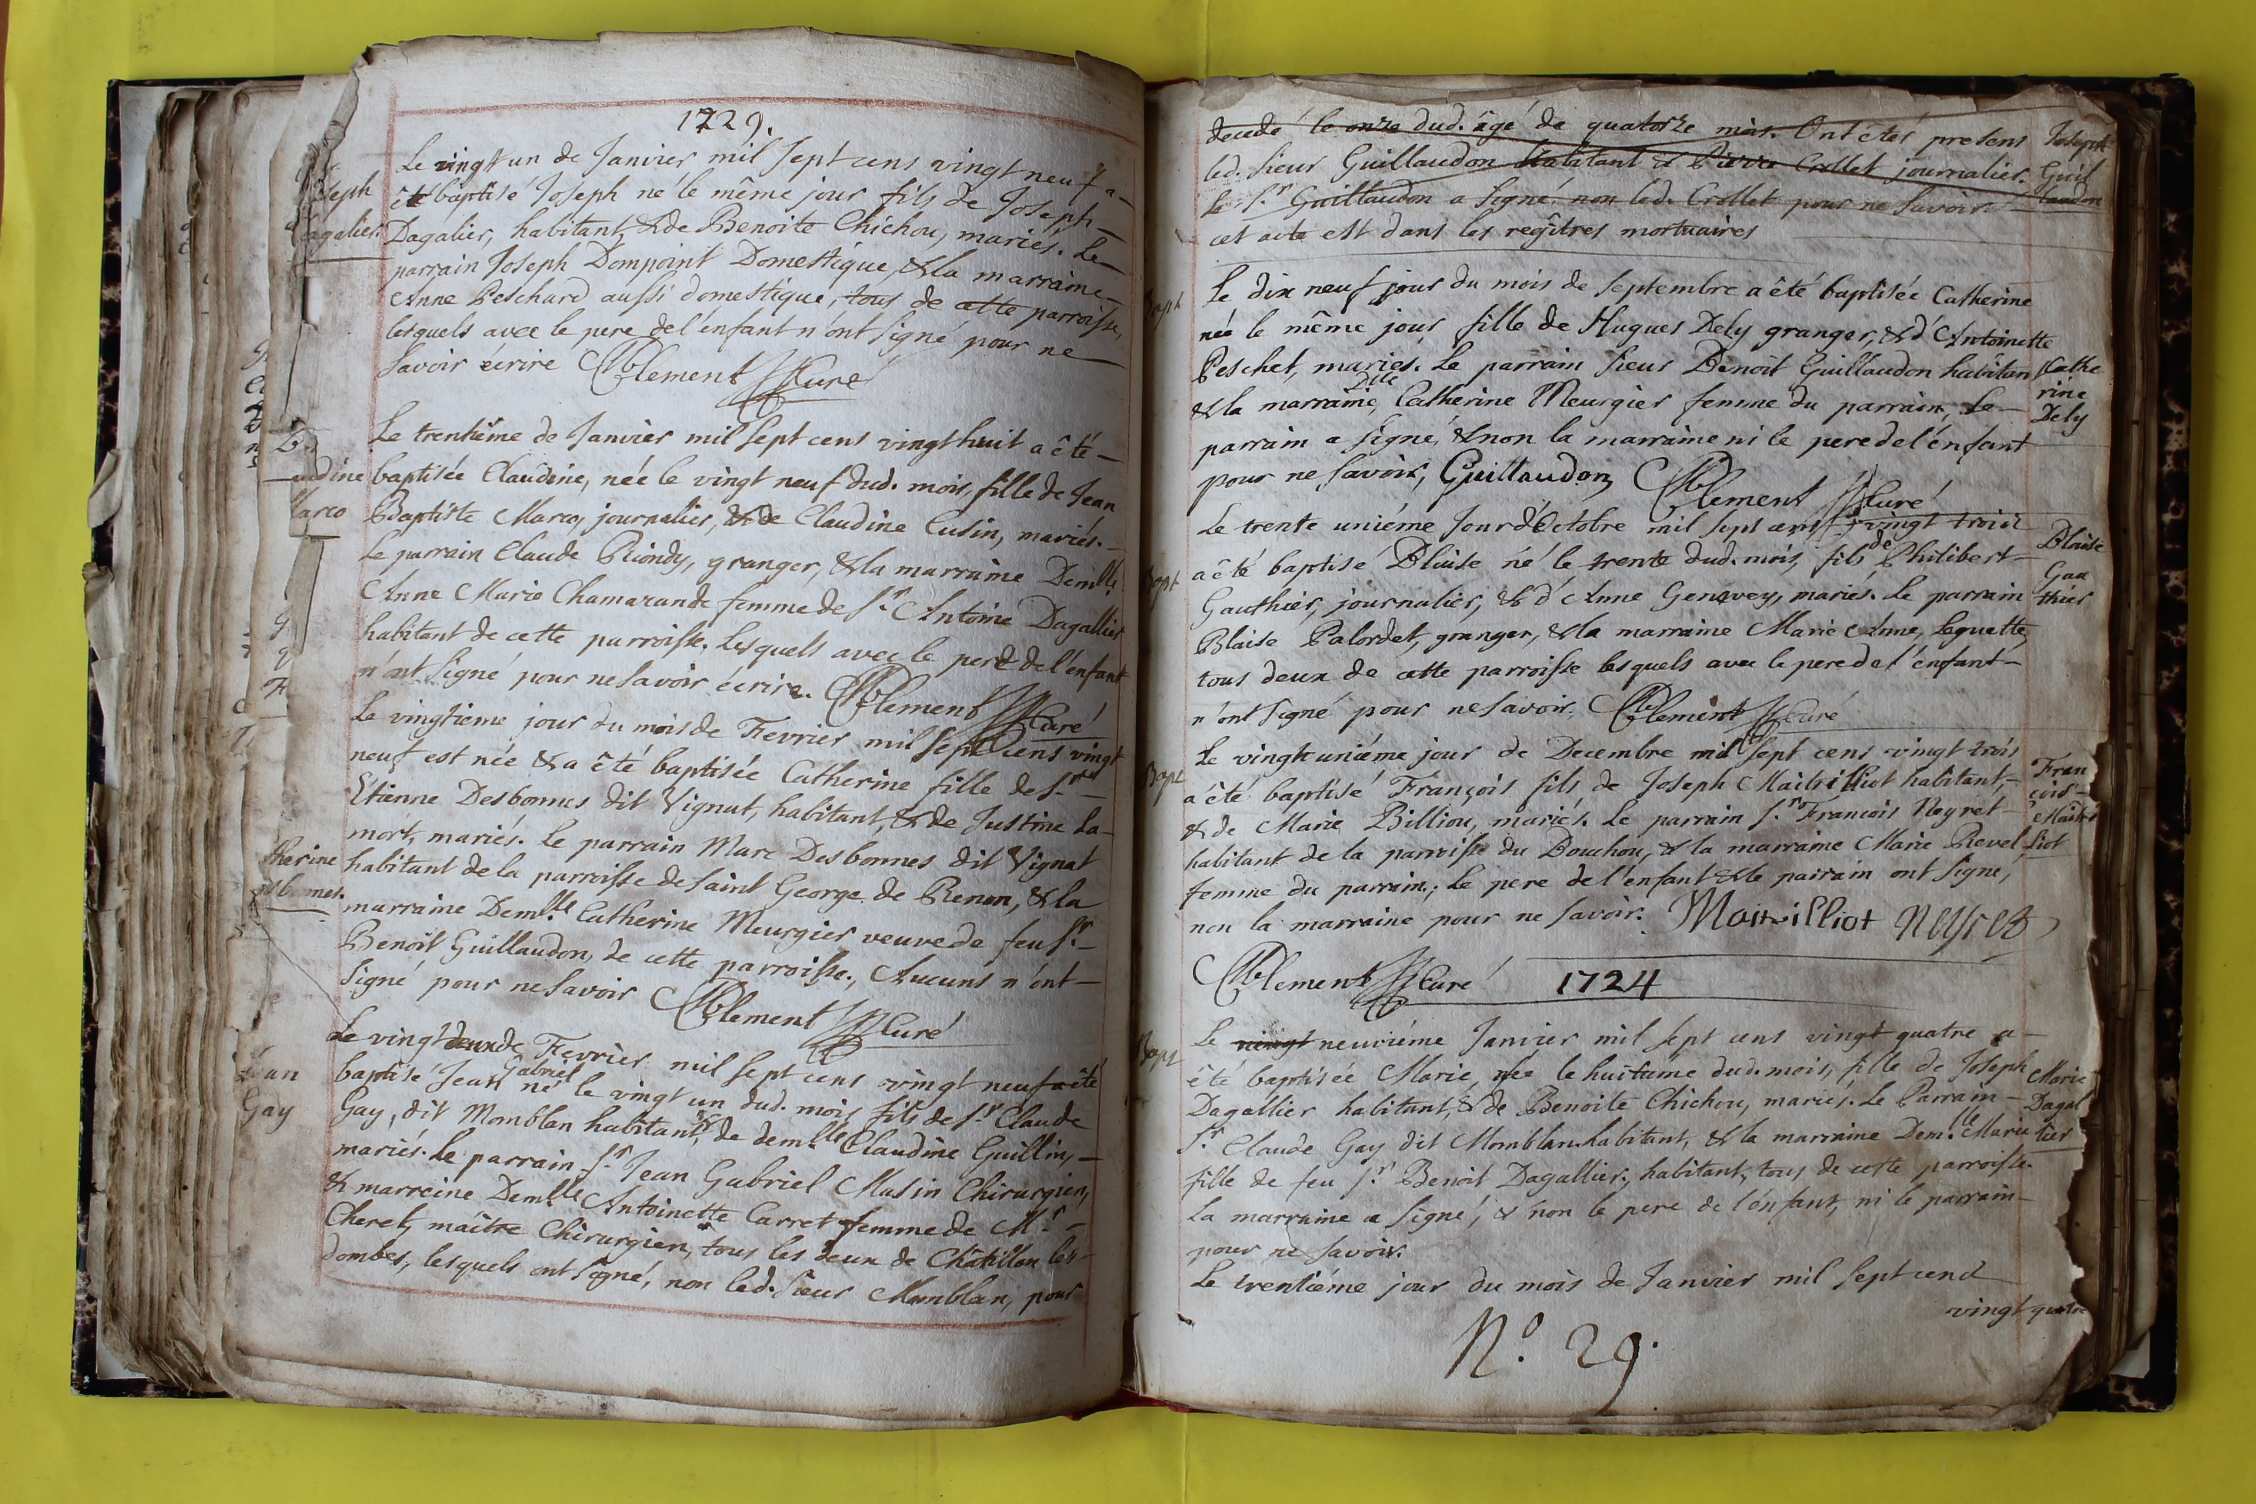 1729.
Le vingt un de Janvier mil sept cens vingt neuf a
Joseph
été baptisé Joseph né le même jour fils de Joseph
Dagalier
Dagalier, habitant, & de Benoite Chichou, mariés. Le
parrain Joseph Dompoint Domestique, & la marraine
Anne Peschard aussi domestique, tous de cette parroisse,
lesquels avec le pere de l'énfant n'ónt signé pour ne
savoir écrire Clement Curé
Le trentiéme de Janvier mil sept cens vingt huit a été
baptisée Claudine, née le vingt neuf dud. mois, fille de Jean
audine
Marco
Baptiste Marco, journalier, & de Claudine Cusin, mariés.
Le parrain Claude Riondy, granger, & la marraine Demlle
Anne Marie Chamarande femme de Sr. Antoine Dagallier
habitant de cette parroisse. Lesquels avec le pere de l'énfant
n'ónt signé pour ne savoir écrire. Clement Curé
Le vingtieme jour du mois de Fevrier mil sept cens vingt
neuf est née & a été baptisée Catherine fille de Sr.
Etienne Desbonnes dit Vignat, habitant, & de Justine La-
mort, mariés. Le parrain Marc Desbonnes dit Vignat
therine
habitant de la parroisse de Saint George de Renon, & la
sbonnes.
marraine Demlle Catherine Meurgier veuve de feu Sr.
Benoit Guillaudon, de cette parroisse. Aucuns n'ónt
signé pour ne savoir Clement Curé
Le vingt deux de Fevrier mil sept cens vingt neuf a été
Jean
baptisé Jean Gabriel né le vingt un dud. mois fils de Sr. Claude
Gay
Gay, dit Momblan habitant, & de demlle Claudine Guillin,
mariés. Le parrain Sr. Jean Gabriel Masin Chirurgien,
& marreine Demlle Antoinette Carret femme de Mr.
Cheret, maître Chirurgien, tous les deux de Châtillon les
dombes, lesquels ont signé, non led. sieur Momblan, pour
decedé le onze dud. âgé de quatorze mois. Ont étés presens
Joseph
led. Sieur Guillaudon habitant & Pierre Crollet journalier.
Guil
Le Sr. Guillaudon a signé, non led. Crollet pour ne savoir
laudon
cet acte est dans les regîtres mortuaires
Bapt
Le dix neuf jour du mois de septembre a été baptisée Catherine
née le même jour fille de Hugues Dely granger, & d'Antoinette
Peschet, mariés. Le parrain sieur Benoit Guillaudon habitan
Cathe
rine
Dely
& la marraine, Dlle Catherine Meurgier femme du parrain, Le
parrain a signé, & non la marraine ni le pere de l'énfant
pour ne savoir, Guillaudon Clement Curé
Le trente uniéme jour d'Octobre mil sept cens vingt trois
Blaise
Bapt
a été baptisé Blaise né le trente dud. mois, fils de Philibert
Gau
thier
Gauthier, journalier, & d'Anne Genevey, mariés. Le parrain
Blaise Palordet, granger, & la marraine Marie Anne Lequette,
tous deux de cette parroisse lesquels avec le pere de l'énfant
n'ont signé pour ne savoir. Clement Curé
Le vingtuniéme jour de Decembre mil sept cens vingt trois
Bapt
Fran
çois
a été baptisé François fils de Joseph Maitrilliot habitant,
& de Marie Billiou, mariés. Le parrain Sr. François Neyret
liot
habitant de la parroisse du Bouchou, & la marraine Marie Revel,
femme du parrain; Le pere de l'énfant & le parrain ont signé,
non la marraine pour ne savoir. Maitrilliot Neyret
Clement Curé 1724
Bapt
Le vingt neuviéme Janvier mil sept cens vingt quatre a
été baptisée Marie, née le huitiéme dud. mois, fille de Joseph
Marie
Dagallier habitant, & de Benoite Chichou, mariés. Le Parrain
Dagal
Sr. Claude Gay dit Momblan habitant, & la marraine Demlle Marie
lier
fille de feu Sr. Benoit Dagallier, habitant, tous de cette parroisse.
La marraine a signé, & non le pere de l'énfant, ni le parrain
pour ne savoir.
Le trentiéme jour du mois de Janvier mil sept cens
vingt quatre
No. 29.